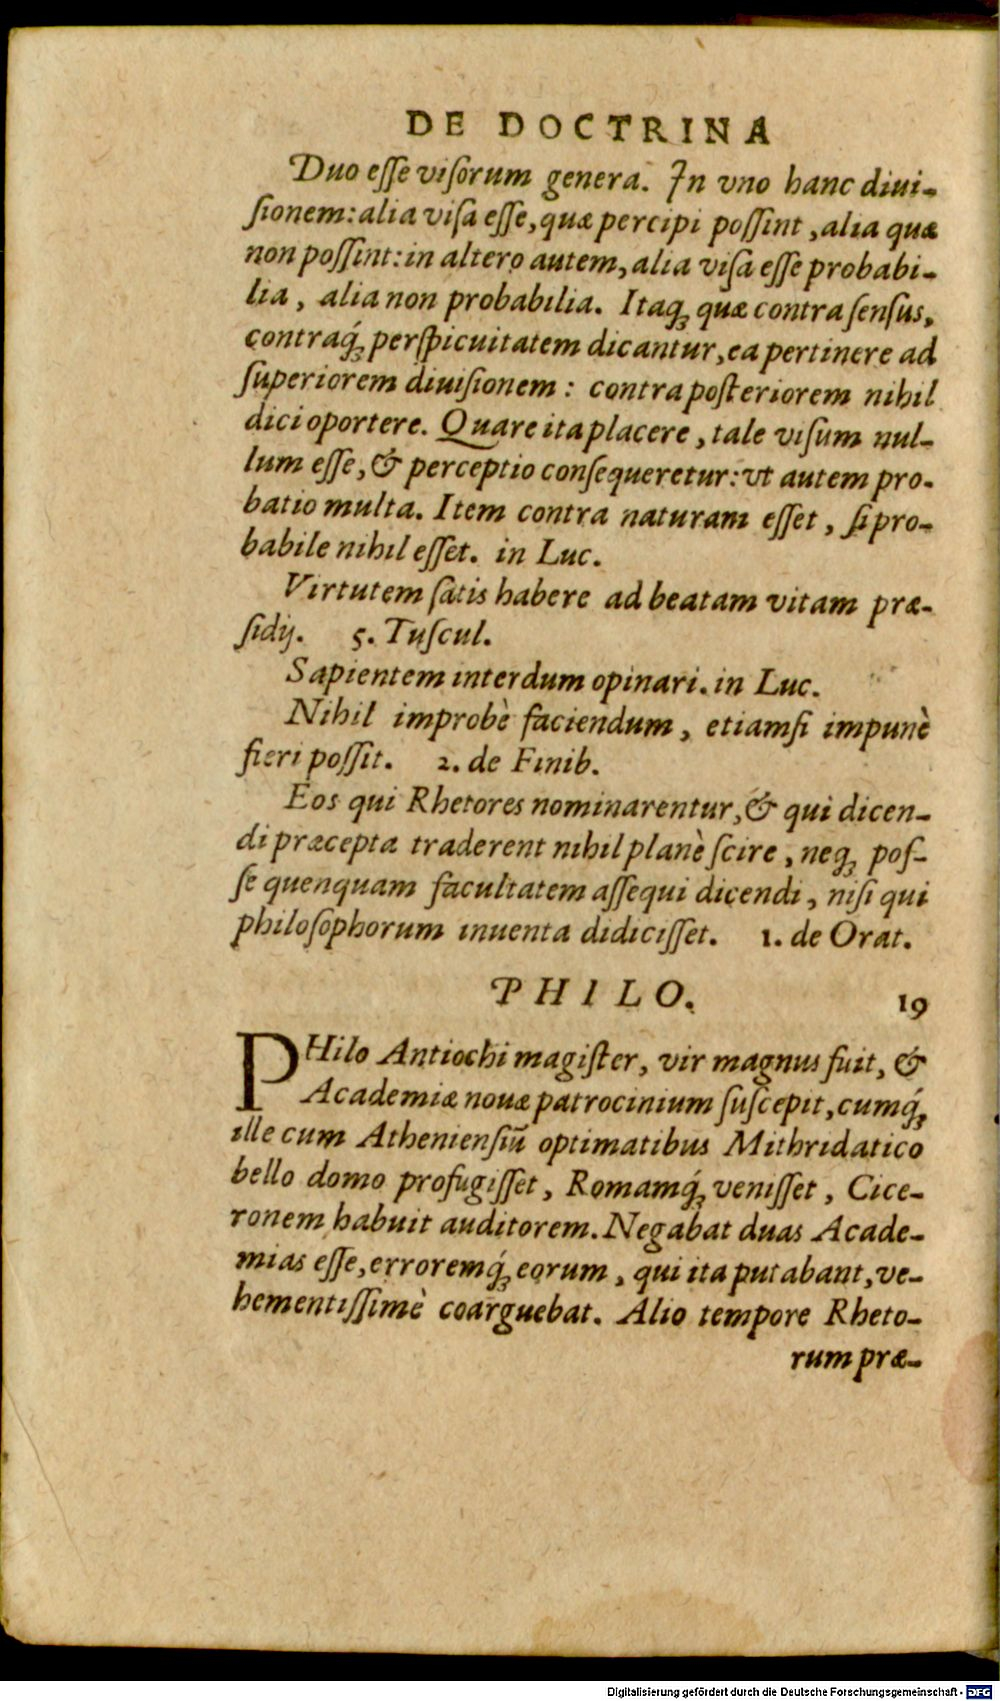 DE DOCTRINA
Duo eſſe viſorum genera. In vno hanc diui-
ſionem: alia viſa eſſe, quæ percipi poſſint, alia quæ
non poſſint: in altero autem, alia viſa eſſe probabi-
lia, alia non probabilia. Itaqꝫ quæ contra ſenſus,
contraq́ꝫ perſpicuitatem dicantur, ea pertinere ad
ſuperiorem diuiſionem: contra poſteriorem nihil
dici oportere. Quare ita placere, tale viſum nul-
lum eſſe, & perceptio conſequeretur: vt autem pro-
batio multa. Item contra naturam eſſet, ſi pro-
babile nihil eſſet. in Luc.
Virtutem ſatis habere ad beatam vitam præ-
ſidij. 5. Tuſcul.
Sapientem interdum opinari. in Luc.
Nihil improbè faciendum, etiamſi impunè
fieri poſſit. 2. de Finib.
Eos qui Rhetores nominarentur, & qui dicen-
di præcepta traderent nihil planè ſcire, neqꝫ poſ-
ſe quenquam facultatem aſſequi dicendi, niſi qui
philoſophorum inuenta didiciſſet. 1. de Orat.
PHILO. 19
PHilo Antiochi magiſter, vir magnus fuit, &
Academiæ nouæ patrocinium ſuſcepit, cumq́ꝫ
ille cum Athenienſiū optimatibus Mithridatico
bello domo profugiſſet, Romamq́ꝫ veniſſet, Cice-
ronem habuit auditorem. Negabat duas Acade-
mias eſſe, erroremq́ꝫ eorum, qui ita putabant, ve-
hementiſſimè coarguebat. Alio tempore Rheto-
rum præ-
Digitalisierung gefördert durch die Deutsche Forschungsgemeinschaft - DFG